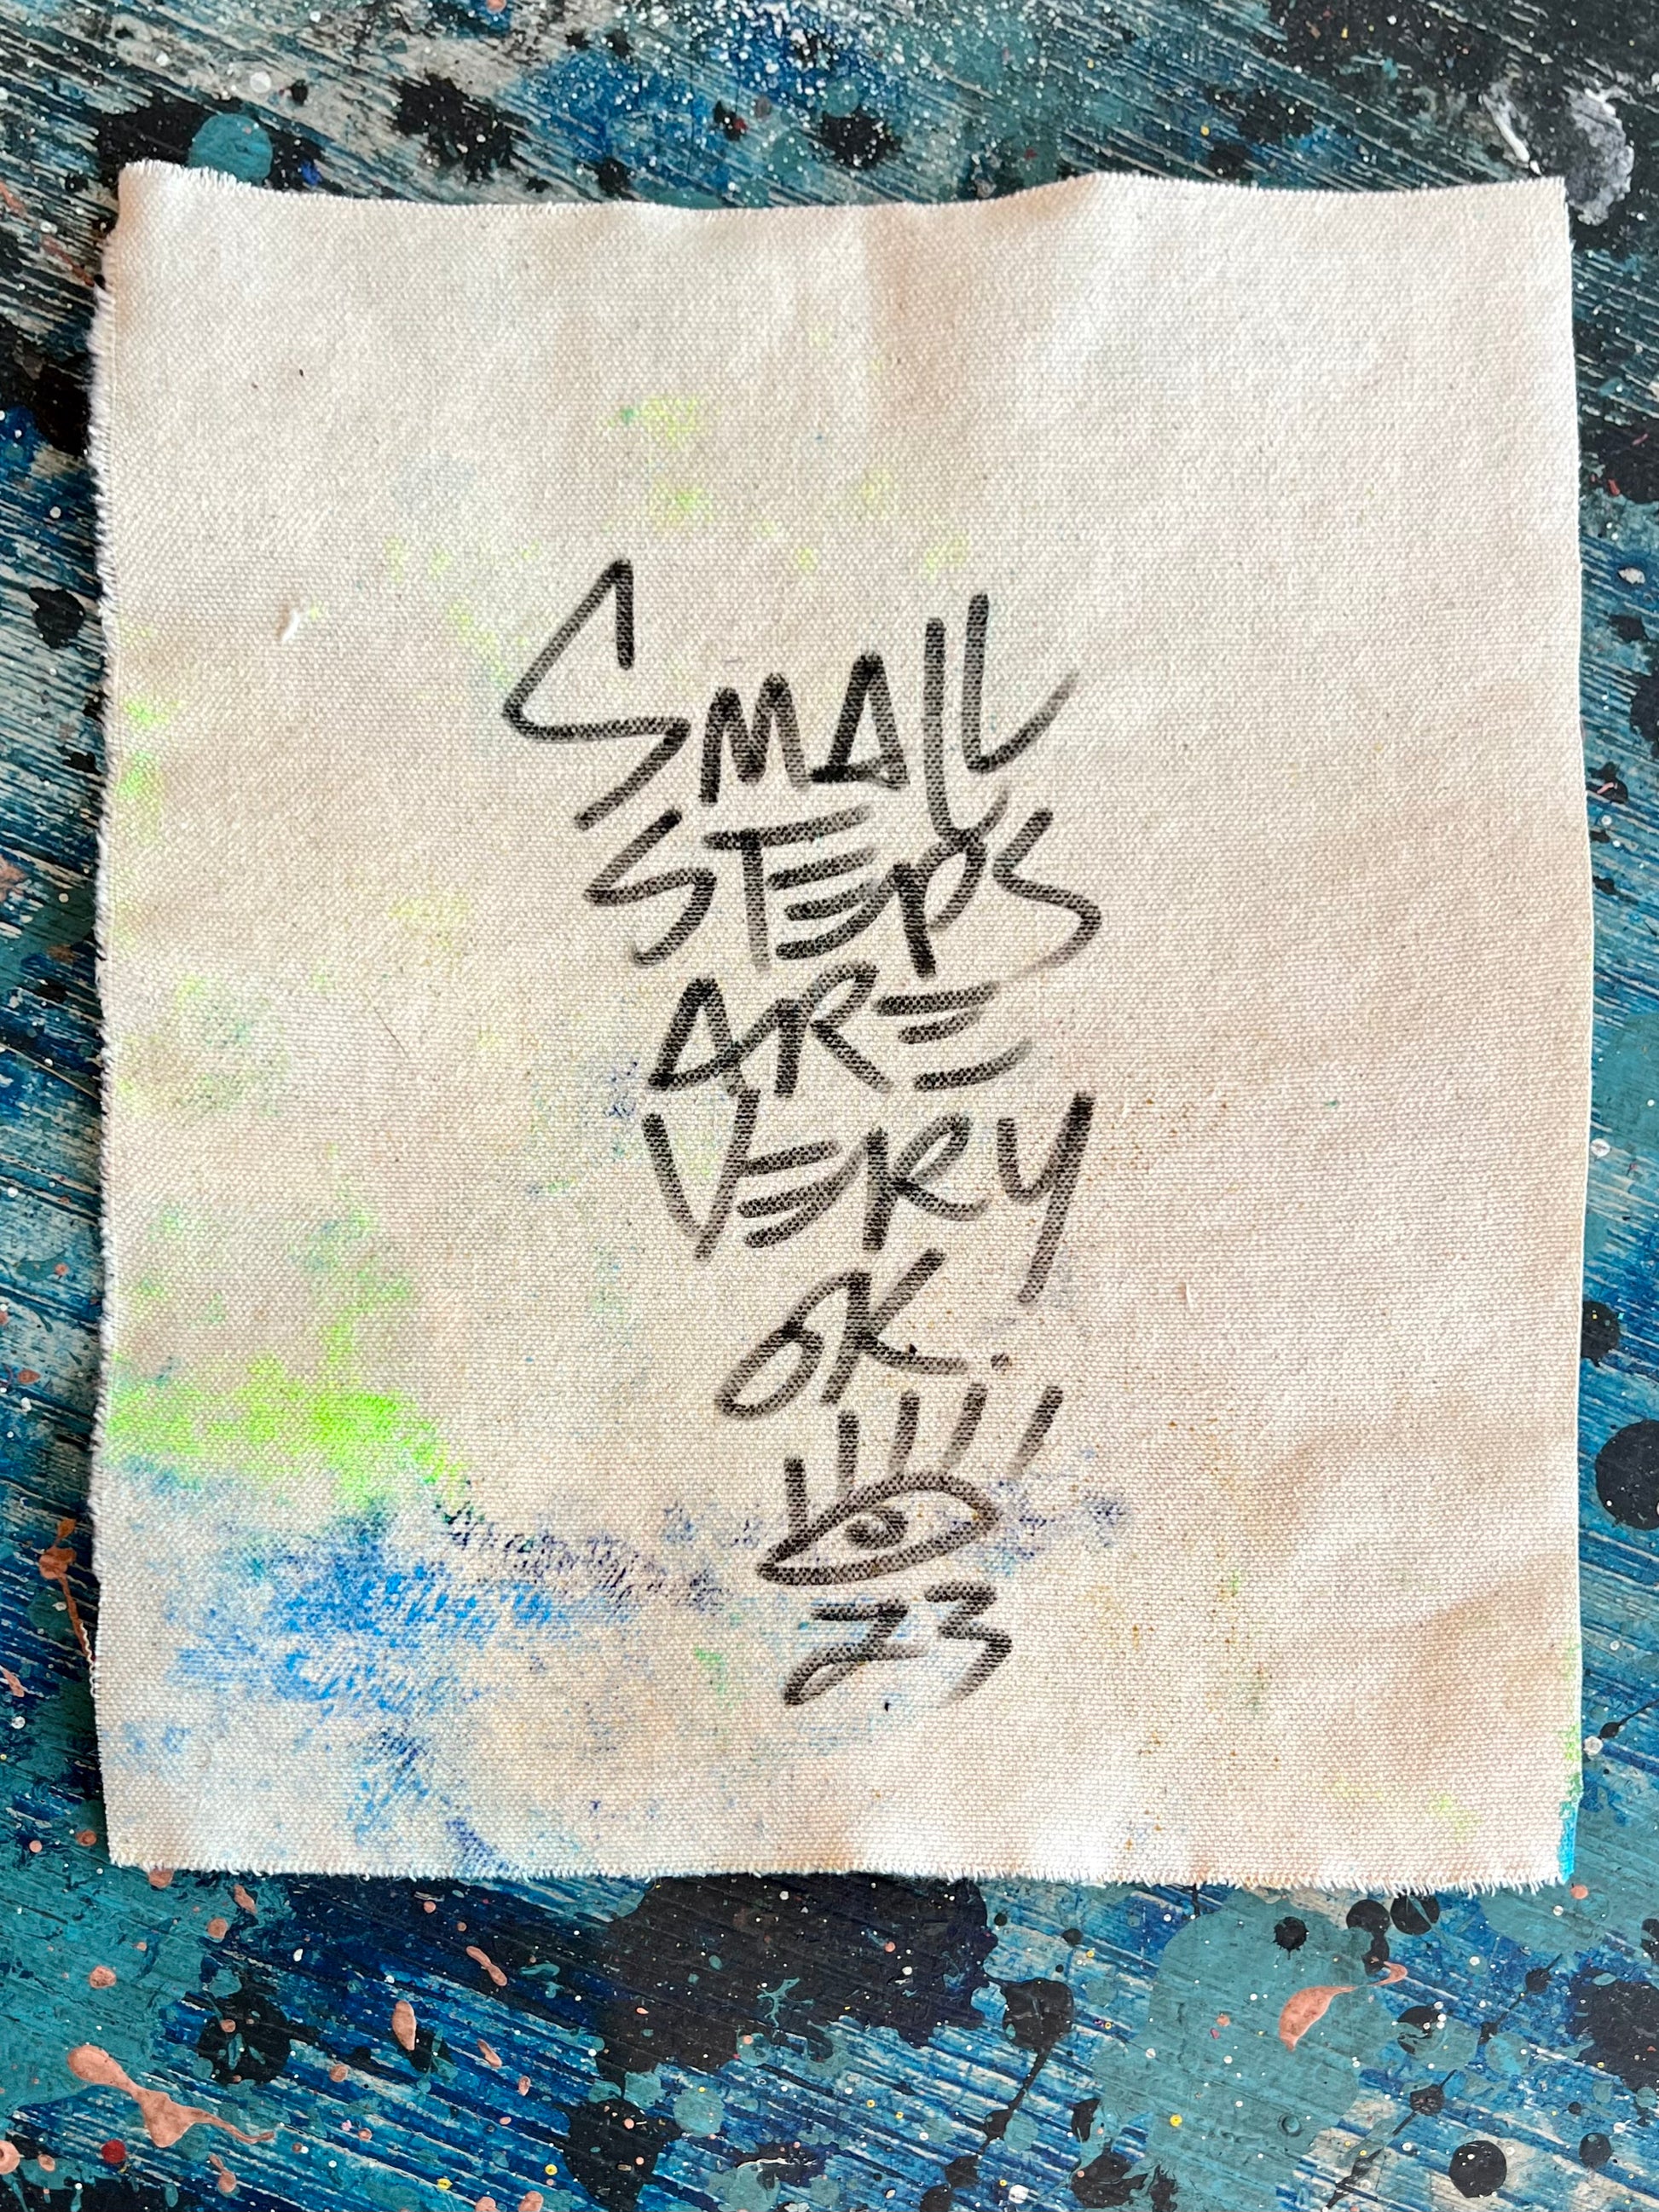 SMALL
STEPS
ARE
VERY
OK.
23